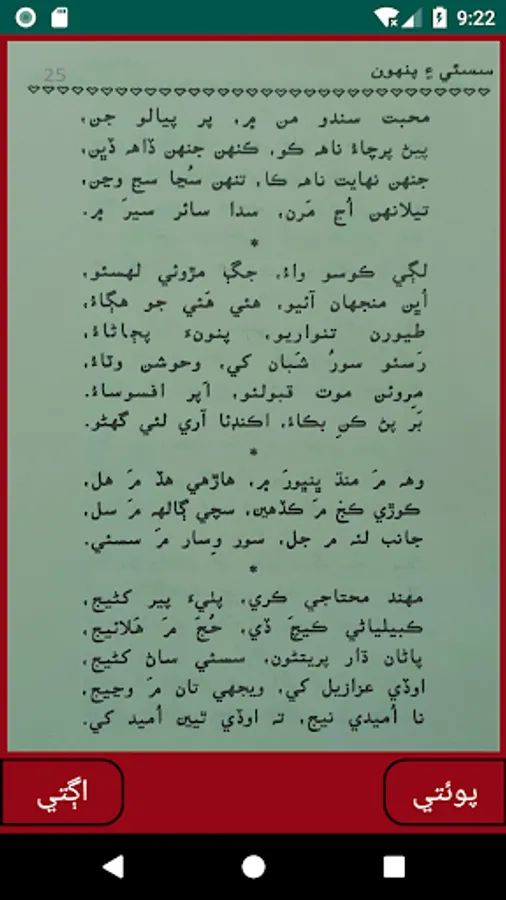 9:22
سسئي ۽ پنهون
25
محبت سندو من ۾، پر پيالو جن،
پيئڻ پرچاءُ ناهہ ڪو، ڪنهن جنهن ڏاهہ ڏين،
جنهن نهايت ناهہ ڪا، تنهن سُڃا سڃ وڃن،
تيلانهن اُڃ مَرن، سدا سائر سيرَ ۾.
*
لڳي ڪوسو واءُ، جڳ مڙوئي لهسئو،
اُڀن منجهان آئيو، هئي هَئي جو هڳاءُ،
طيورن تنواريو، پنونءَ پڇاڻاءُ،
رَسئو سورُ شَبان کي، وحوشن وٽاءُ،
مِروئن موت قبولئو، آپر افسوساءُ،
بَر پڻ ڪنِ بڪاءُ، اڪنڊئا آري لئي گهڻو.
*
وهہ مَ منڌ ڀنڀورَ ۾، هاڙهي هڏ مَ هل،
ڪوڙي ڪڄ مَ ڪڏهين، سچي ڳالهہ مَ سل،
جانب لئہ م جل، سور وسار مَ سسئي.
*
مهند محتاجي ڪري، پٺيءَ پير کڻيج،
ڪيبلياڻي ڪيچَ ڏي، حُجَ مَ هَلائيج،
پاڻان ڌار پريتڻون، سسئي ساڻ کڻيج،
اوڏي عزازيل کي، ويجهي تان مَ وڃيج،
نا اُميدي نيج، تہ اوڏي ٿيين اُميد کي.
اڳتي
پوئتي